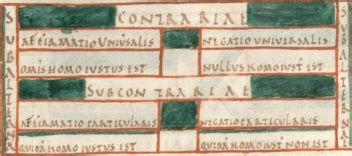 CONTRARIAE
AFFIRMATIO UNIUSALIS NEGATIO UNIVERSALIS
OMIS HOMO IUSTUS EST NULLUS HOMO IUST EST
SUBCONTRARIAE
AFFIRMATIO PARTICULARIS NEGATIO PARTICULARIS
QUIDA HOMO IUSTUS EST QUIDA HOMO IUST NON EST
SUBALTERNA
SUBALTERNA